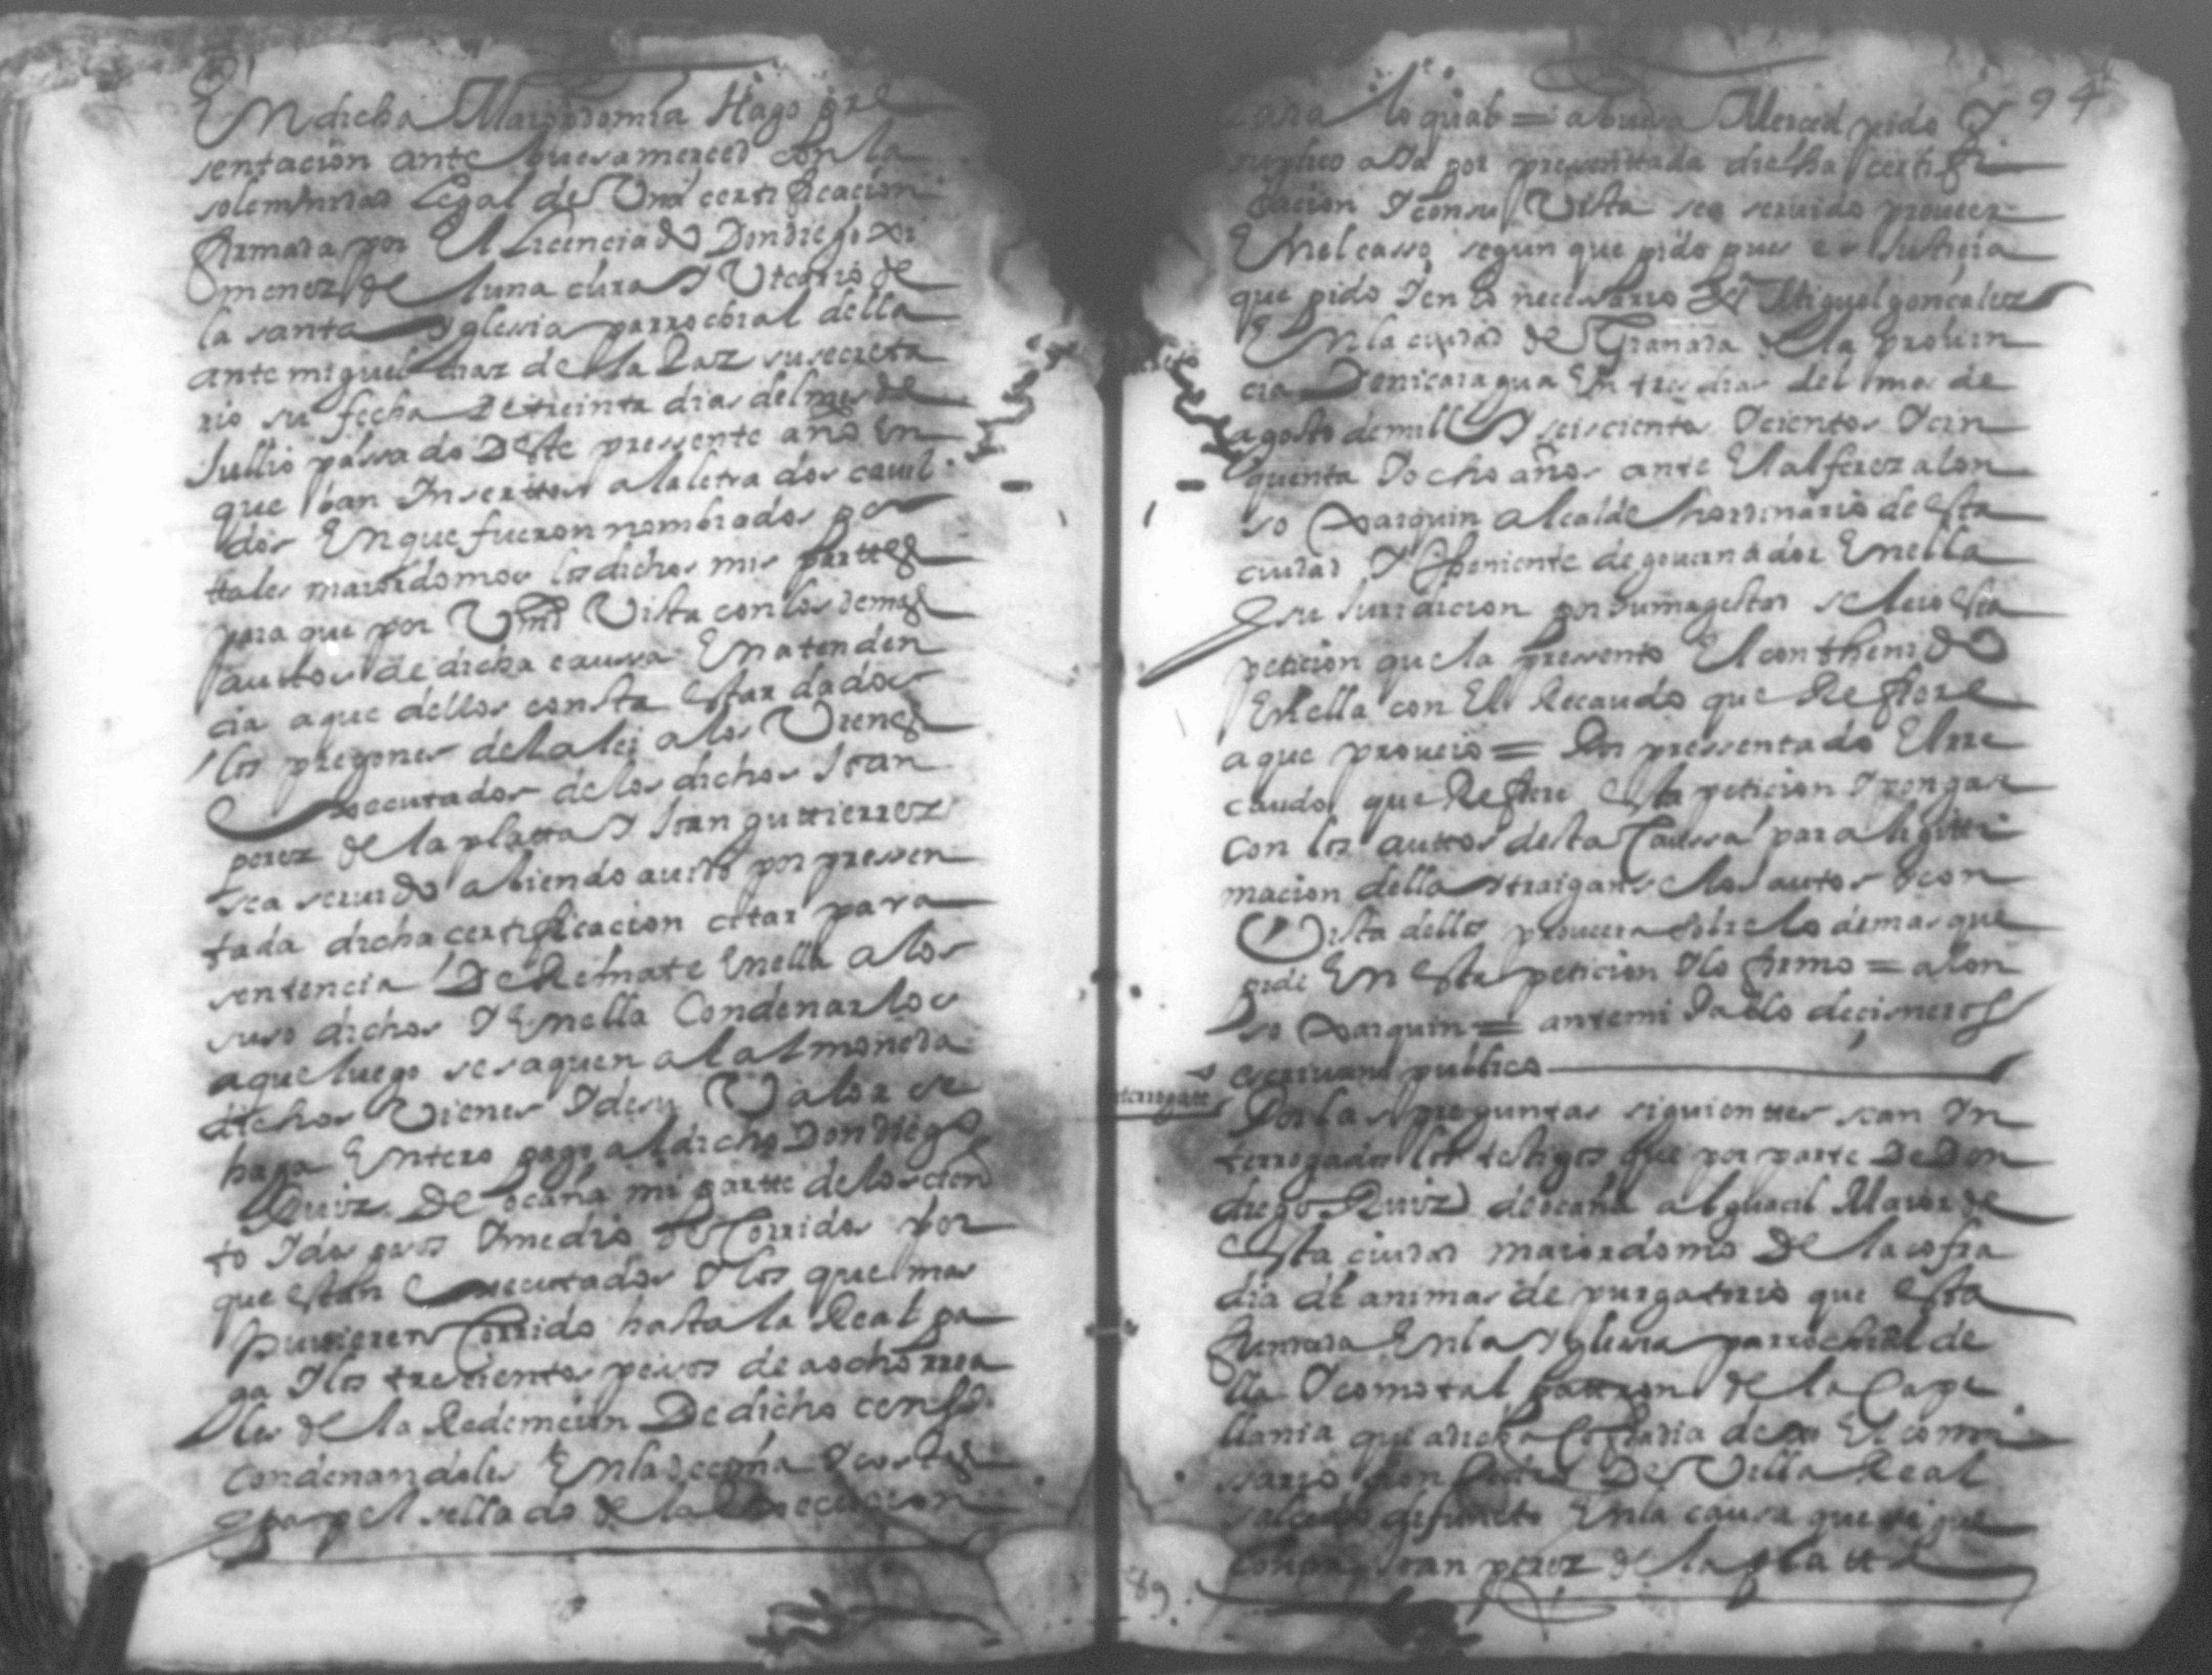 En dicha Maiordomia Hago pre
sentacion ante buesa merced con la
solemnidad legal de Una certificacion
firmada por El Licenciado Don diego xi
menez de luna cura Y Vicario de
la santa Yglesia parrochial della
ante miguel diaz de la Paz su secreta
rio su fecha De treinta dias del mes de
Jullio passado Deste pressente año En
que ban Insertos a la letra dos cauil
dos En que fueron nombrados por
tales maiordomos los dichos mis parttes
para que por Vmd Vista con los demas
auttos de dicha caussa En atenden
cia a que dellos consta estar dados
los pregones de la lei a los Vienes
Executados de los dichos Joan
perez de la platta Y Joan guttierrez
sea seruido abiendo auido por pressen
tada dicha certificacion citar para
sentencia De Remate En ella a los
suso dichos Y En ella Condenarlos
a que luego se saquen al almoneda
dichos Vienes Y de su Valor se
haga Entero pago al dicho Don diego
Ruiz De ocaña mi partte de los cien
to Y dos pesos Y medio de Corridos por
que estan Executados Y los que mas
huuieren Corrido hasta la Real pa
ga Y los trecientos pesos de a ocho rrea
les de la Redemcion De dicho censso
condenandoles En la decima Y costas
papel sellado de la Execucion
94
para lo qual = a buesa Merced pido Y
suplico aia por pressentada dicha certifi
cacion Y con su Vista sea seruido proueer
En el casso segun que pido pues es Justicia
que pido Y en lo necessario Miguel gonçalez
En la ciudad de Granada de la prouin
cia De nicaragua En tres dias del mes de
agosto de mill Y seiscientos Y cientos Y cin
quenta Y ocho años ante El alferez alon
so Xarquin alcalde hordinario de esta
ciudad Y Theniente de gouernador En ella
su Juridicion por su magestad se leio esta
peticion que la pressento El conthenido
En ella con El Recaudo que Refiere
a que proueio = Por pressentado El rre
caudo que Refiere esta peticion Y pongase
con los auttos desta Caussa para legitti
macion della Y traiganse los autos Y con
Vista dellos proueera sobre lo demas que
pide En esta peticion Y lo firmo = alon
so Xarquin = ante mi Pablo de cisneros
escriuano publico
Por las preguntas siguienttes sean In
terrogados los testigos que por parte De Don
diego Ruiz de ocaña alguacil Maior de
Esta ciudad maiordomo De la cofra
dia de animas de purgatorio que esta
fundada En la Yglesia parrochial de
lla Y como tal pattron de la Cape
llania que a dicha Cofradia dexo El comi
ssario don Pedro De Villa Real
salcedo difuncto En la causa que sigue
contra Joan perez de la platta
89